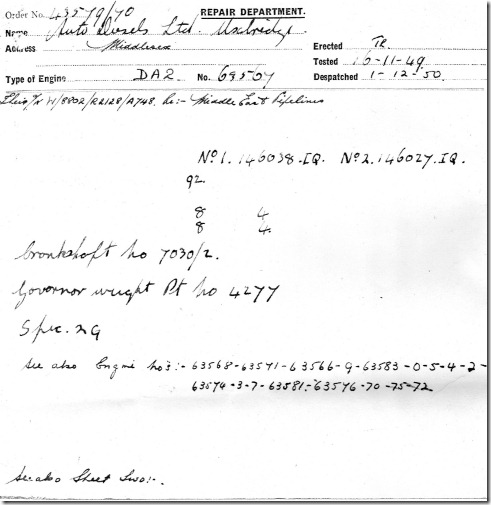 Order No. 43579/70 REPAIR DEPARTMENT.
Name Auto Diesels Ltd. Uxbridge
Address Middlesex Erected TR.
Tested 16-11-49
Type of Engine DA2. No. 69567 Despatched 1-12-50.
W/8802/R2128/A748. Re:- Middle East Pipelines
No 1. 146038. IQ. No 2. 146027. IQ.
92.
8 4
8 4.
Crankshaft No 7030/2.
Governor weight Pt No 4277
Spec. 29
See also Engine Nos:- 63568-63571-63566-9-63583-0-5-4-2-
63574-3-7-63581-63576-70-75-72
See also Sheet Two:-